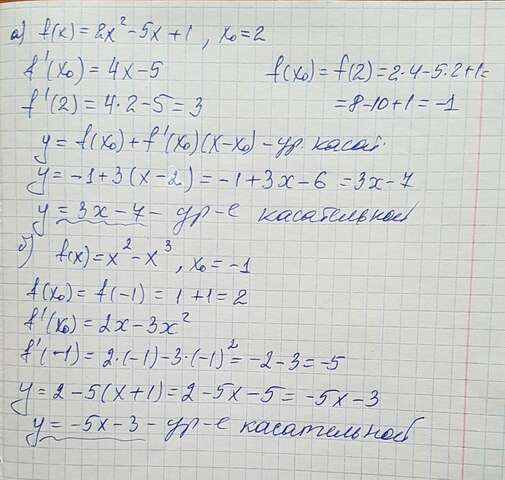 а) f(x) = 2x² - 5x + 1 , x₀ = 2
f'(x₀) = 4x - 5
f(x₀) = f(2) = 2·4 - 5·2 + 1 =
f'(2) = 4·2 - 5 = 3
= 8 - 10 + 1 = -1
y = f(x₀) + f'(x₀)(x - x₀) - ур. касат.
y = -1 + 3(x - 2) = -1 + 3x - 6 = 3x - 7
y = 3x - 7 - ур-е касательной
б) f(x) = x² - x³ , x₀ = -1
f(x₀) = f(-1) = 1 + 1 = 2
f'(x₀) = 2x - 3x²
f'(-1) = 2·(-1) - 3·(-1)² = -2 - 3 = -5
y = 2 - 5(x + 1) = 2 - 5x - 5 = -5x - 3
y = -5x - 3 - ур-е касательной